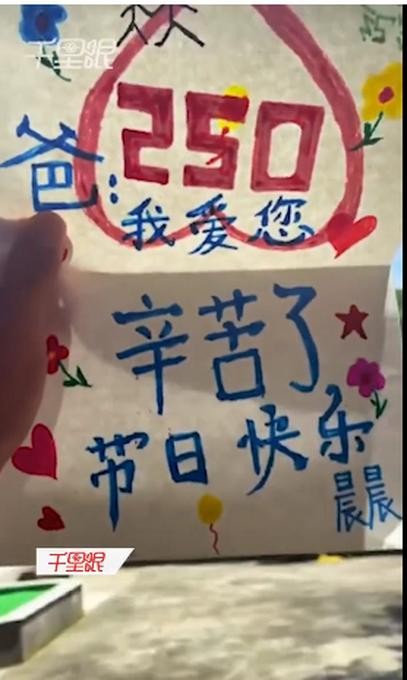 千里眼
250
爸:
我爱您
辛苦了,
节日快乐
晨晨
千里眼